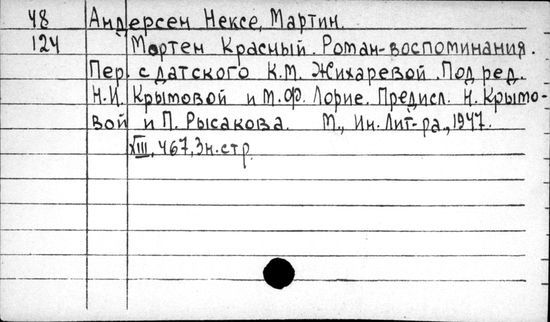 48 Андерсен Нексе, Мартин.
124 Мортен Красный. Роман-воспоминания.
Пер. с датского К.М. Жихаревой. Под ред.
Н.И. Крымовой и М.Ф. Лорие. Предисл. Н. Крымо-
вой и П. Рысакова. М., Ин. Лит-ра., 1947.
XIII, 467, 3н. стр.